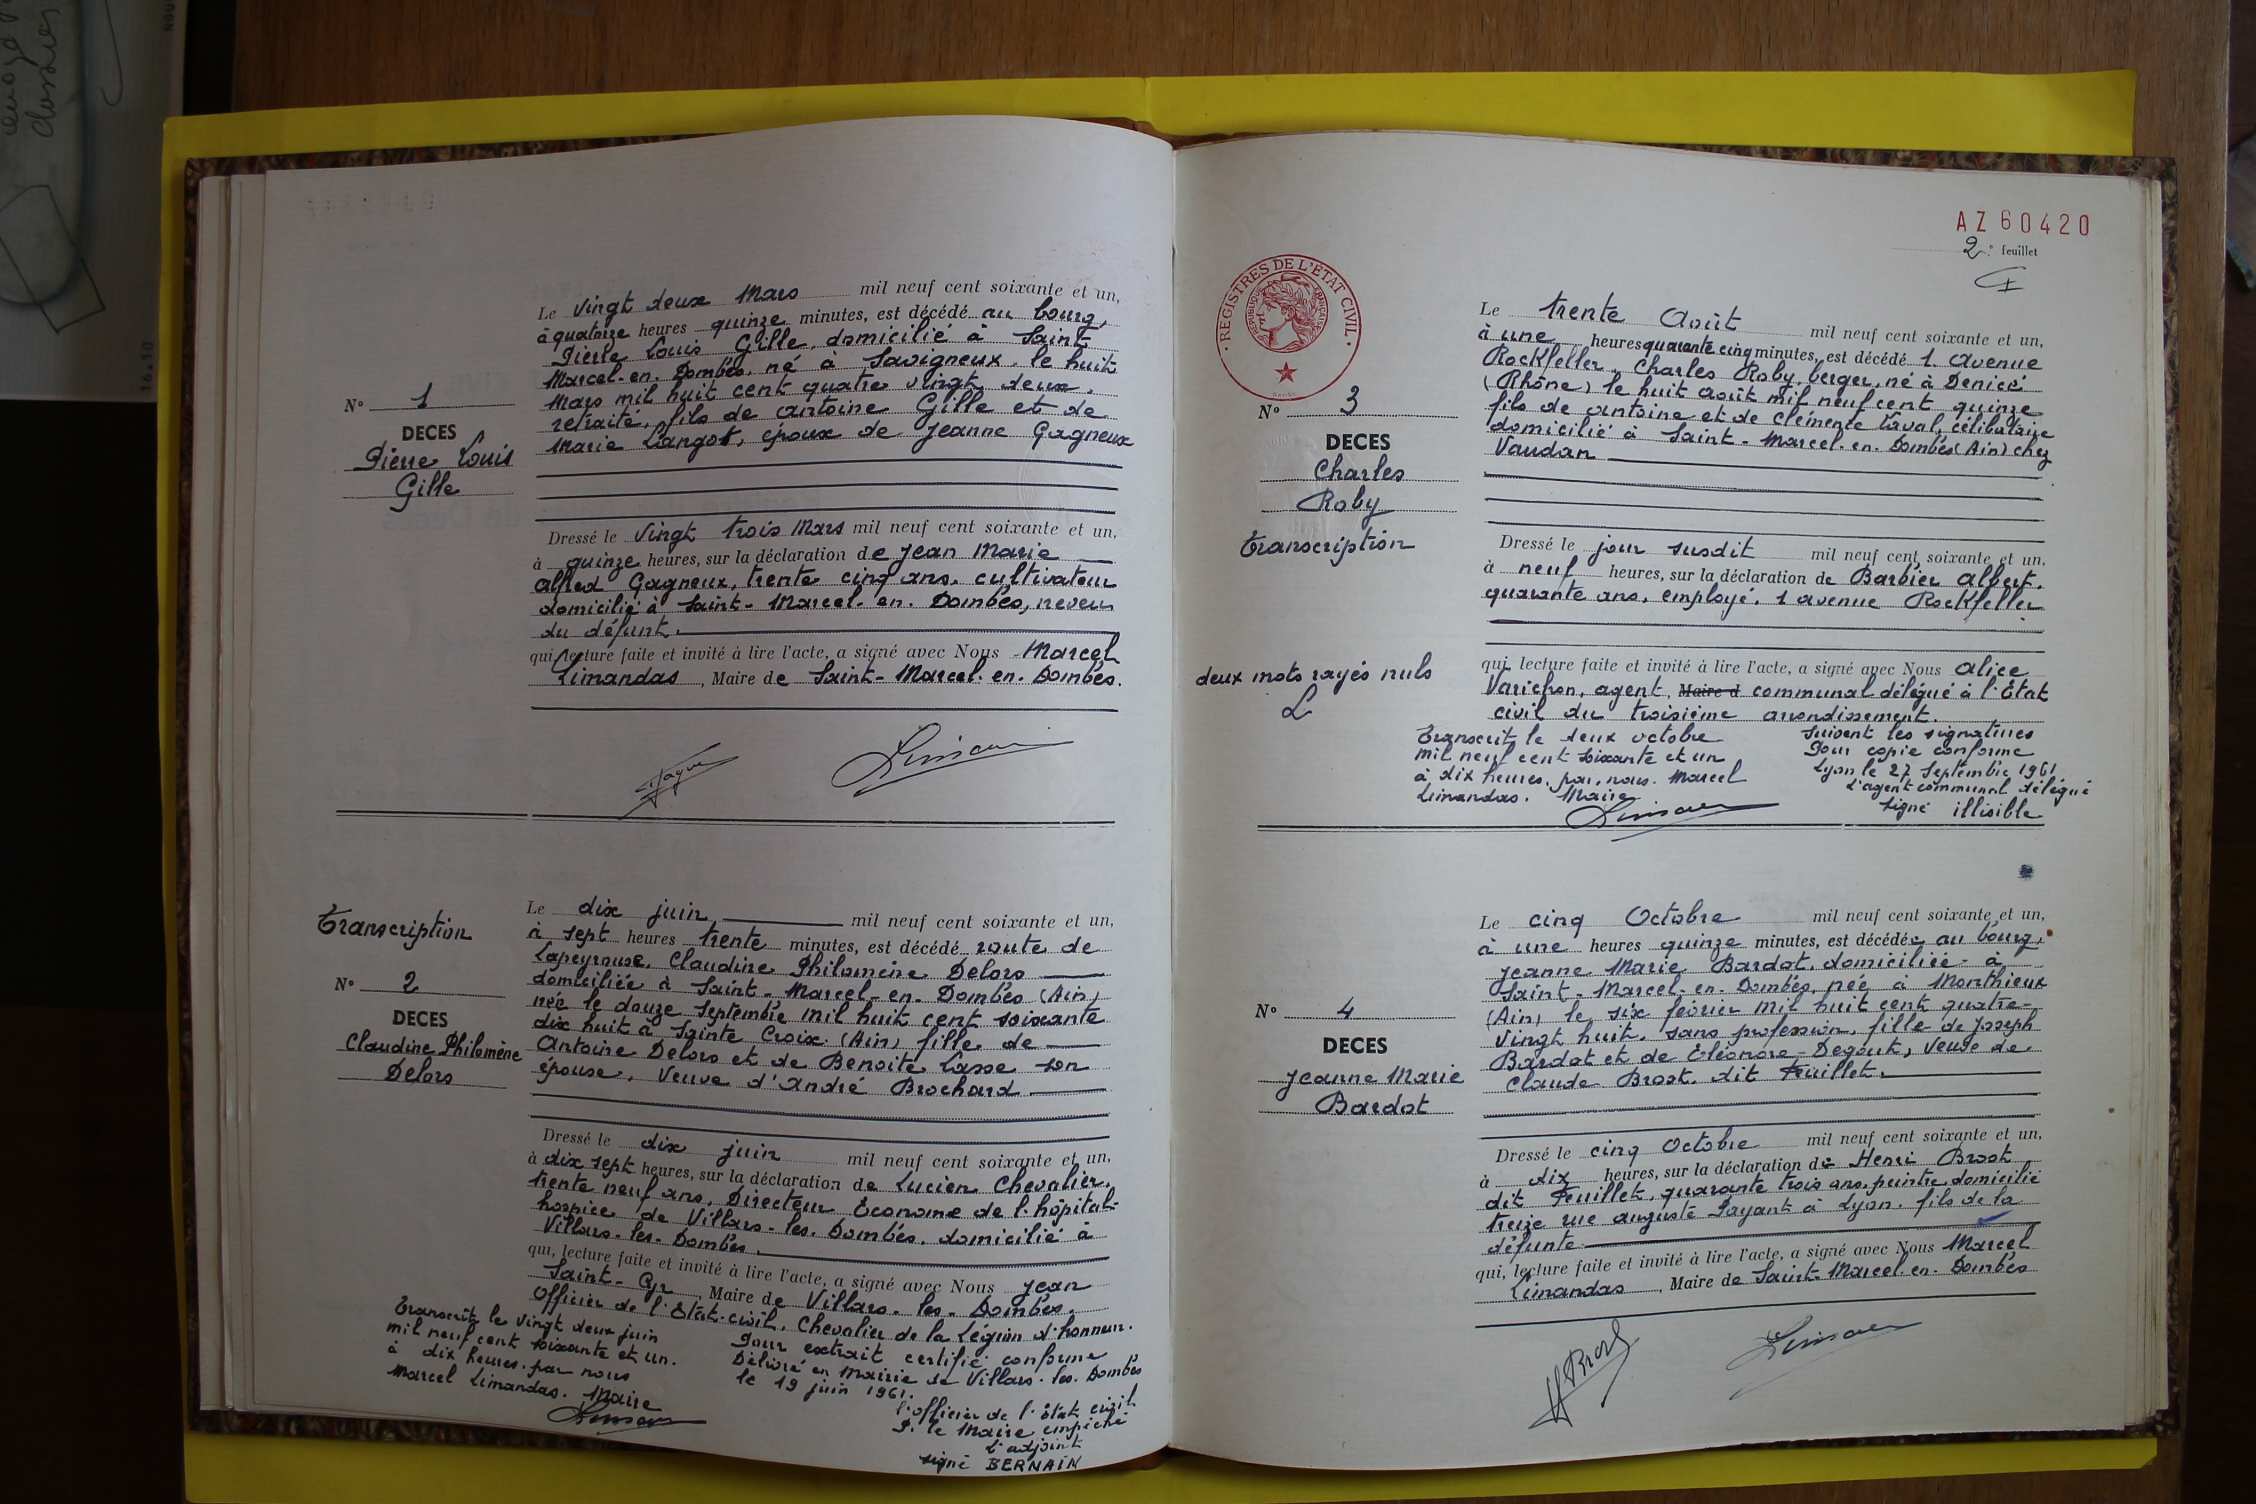 N° 1
DECES
Pierre Louis
Gille
Le vingt deux Mars mil neuf cent soixante et un,
à quatorze heures quinze minutes, est décédé au bourg,
Pierre Louis Gille, domicilié à Saint
Marcel-en-Dombes, né à Savigneux, le huit
Mars mil huit cent quatre vingt deux,
retraité, fils de Antoine Gille et de
Marie Langot, époux de Jeanne Gagneux
Dressé le vingt trois Mars mil neuf cent soixante et un,
à quinze heures, sur la déclaration de Jean Marie
Alfred Gagneux, trente cinq ans, cultivateur
domicilié à Saint-Marcel-en-Dombes, neveu
du défunt.
qui, lecture faite et invité à lire l'acte, a signé avec Nous Marcel
Limandas, Maire de Saint-Marcel-en-Dombes.
Transcription
N° 2
DECES
Claudine Philomène
Delors
Le dix juin mil neuf cent soixante et un,
à sept heures trente minutes, est décédé route de
Lapeyrouse, Claudine Philomène Delors
domiciliée à Saint-Marcel-en-Dombes (Ain)
née le douze septembre mil huit cent soixante
dix huit à Sainte Croix (Ain) fille de
Antoine Delors et de Benoite Lasse son
épouse, Veuve d'André Brochard
Dressé le dix juin mil neuf cent soixante et un,
à dix sept heures, sur la déclaration de Lucien Chevalier,
trente neuf ans, Directeur Econome de l'hôpital-
hospice de Villars-les-Dombes, domicilié à
Villars-les-Dombes.
qui, lecture faite et invité à lire l'acte, a signé avec Nous Jean
Saint-Cyr, Maire de Villars-les-Dombes.
Officier de l'Etat-civil, Chevalier de la Légion d'honneur.
Transcrit le vingt deux juin
mil neuf cent soixante et un.
à dix heures, par nous
Marcel Limandas. Maire
Pour extrait certifié conforme
Délivré en Mairie de Villars-les-Dombes
le 19 juin 1961.
l'officier de l'état civil
P. le Maire empêché
l'adjoint
signé BERNAIN
AZ 60420
2e feuillet
REGISTRES DE L'ETAT CIVIL
REPUBLIQUE FRANCAISE
N° 3
DECES
Charles
Roby
Transcription
deux mots rayés nuls
L
Le trente Août mil neuf cent soixante et un,
à une heures quarante cinq minutes, est décédé 1, avenue
Rockfeller, Charles Roby, berger, né à Denicé
(Rhône) le huit août mil neuf cent quinze
fils de Antoine et de Clémente Laval, célibataire
domicilié à Saint-Marcel-en-Dombes (Ain) chez
Vaudan
Dressé le jour susdit mil neuf cent soixante et un,
à neuf heures, sur la déclaration de Barbier Albert,
quarante ans, employé, 1 avenue Rockfeller
qui, lecture faite et invité à lire l'acte, a signé avec Nous Alice
Varichon, agent, Maire d communal délégué à l'Etat
civil du troisième arrondissement.
Transcrit le deux octobre
mil neuf cent soixante et un
à dix heures, par nous. Marcel
Limandas. Maire
Suivent les signatures
Pour copie conforme
Lyon le 27 Septembre 1961
L'agent communal délégué
signé illisible
N° 4
DECES
Jeanne Marie
Bardot
Le cinq Octobre mil neuf cent soixante et un,
à une heures quinze minutes, est décédée au bourg,
Jeanne Marie Bardot, domiciliée à
Saint-Marcel-en-Dombes, née à Monthieux
(Ain) le six février mil huit cent quatre-
vingt huit, sans profession, fille de Joseph
Bardot et de Eléonore Degout, Veuve de
Claude Brost, dit Feuillet.
Dressé le cinq Octobre mil neuf cent soixante et un,
à dix heures, sur la déclaration de Henri Brost
dit Feuillet, quarante trois ans, peintre, domicilié
treize rue Auguste Payant à Lyon, fils de la
défunte
qui, lecture faite et invité à lire l'acte, a signé avec Nous Marcel
Limandas, Maire de Saint-Marcel-en-Dombes
HBrost